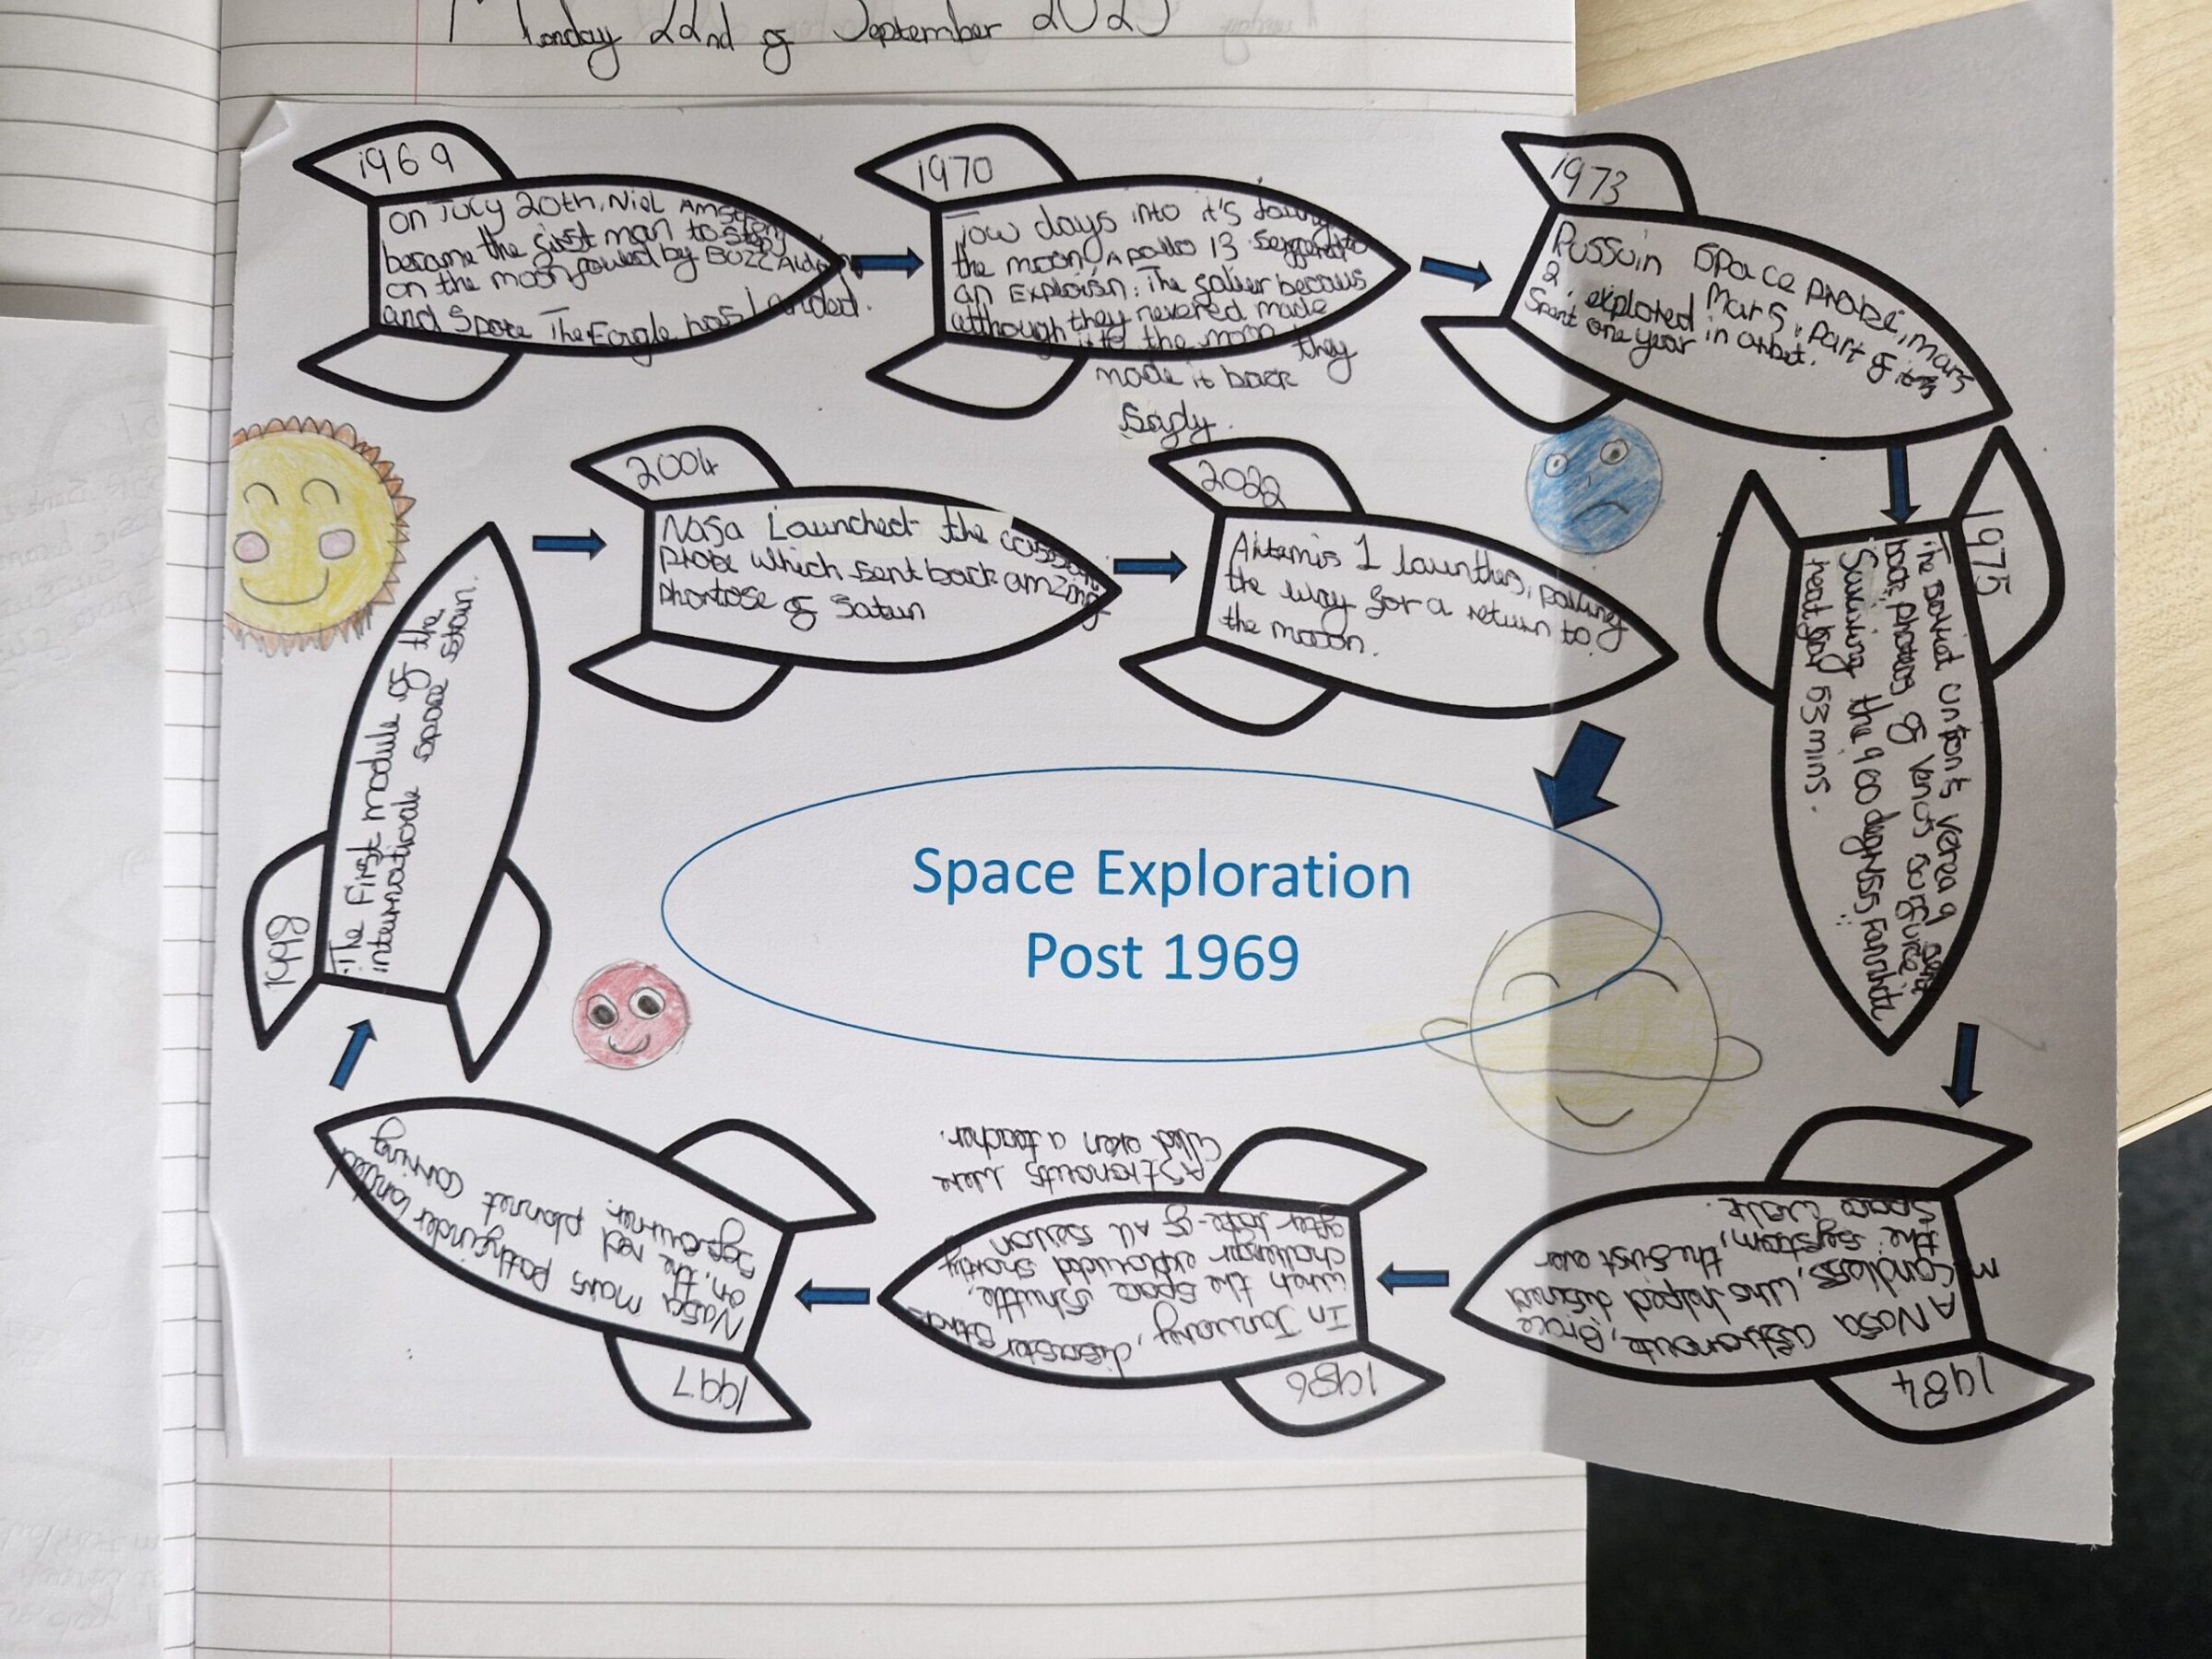 Monday 22nd of September 2025
1969
on July 20th, Niel Amstrong
became the first man to step
on the moon folowed by Buzz Aldrin
and Space The Eagle has Landed.
1970
Tow days into it's
the moon, Apollo 13 seggered to
an Exploisn: The failuer becaus
although they nevered made
it to the moon they
made it back
Safly.
1973
Russuin Space probe, mars
2, explored Mars, part of its
Spent one year in orbet.
1975
The Soviet unions venera 9 sent
back photos of Venus surfuce,
Suriving the 900 degress
heat for 53 mins.
1984
A Nasa astronout, Broce
mcCandless, who helped disined
the system, the furst ever
Space walk.
1986
In January, disaster Struck
when the space Shuttle,
challenger exploded shortly
after take-off All seven
Astronauts were
killed even a teacher.
1997
Nasa mars Pathfinder landed
on the red plannet carring
1998
The First module of the
internationale space station.
2004
Nasa Launched the cassani
probe which sent back amzing
phontose of Satun
2022
Artemis 1 launthes, paving
the way for a return to
the mooon.
Space Exploration
Post 1969